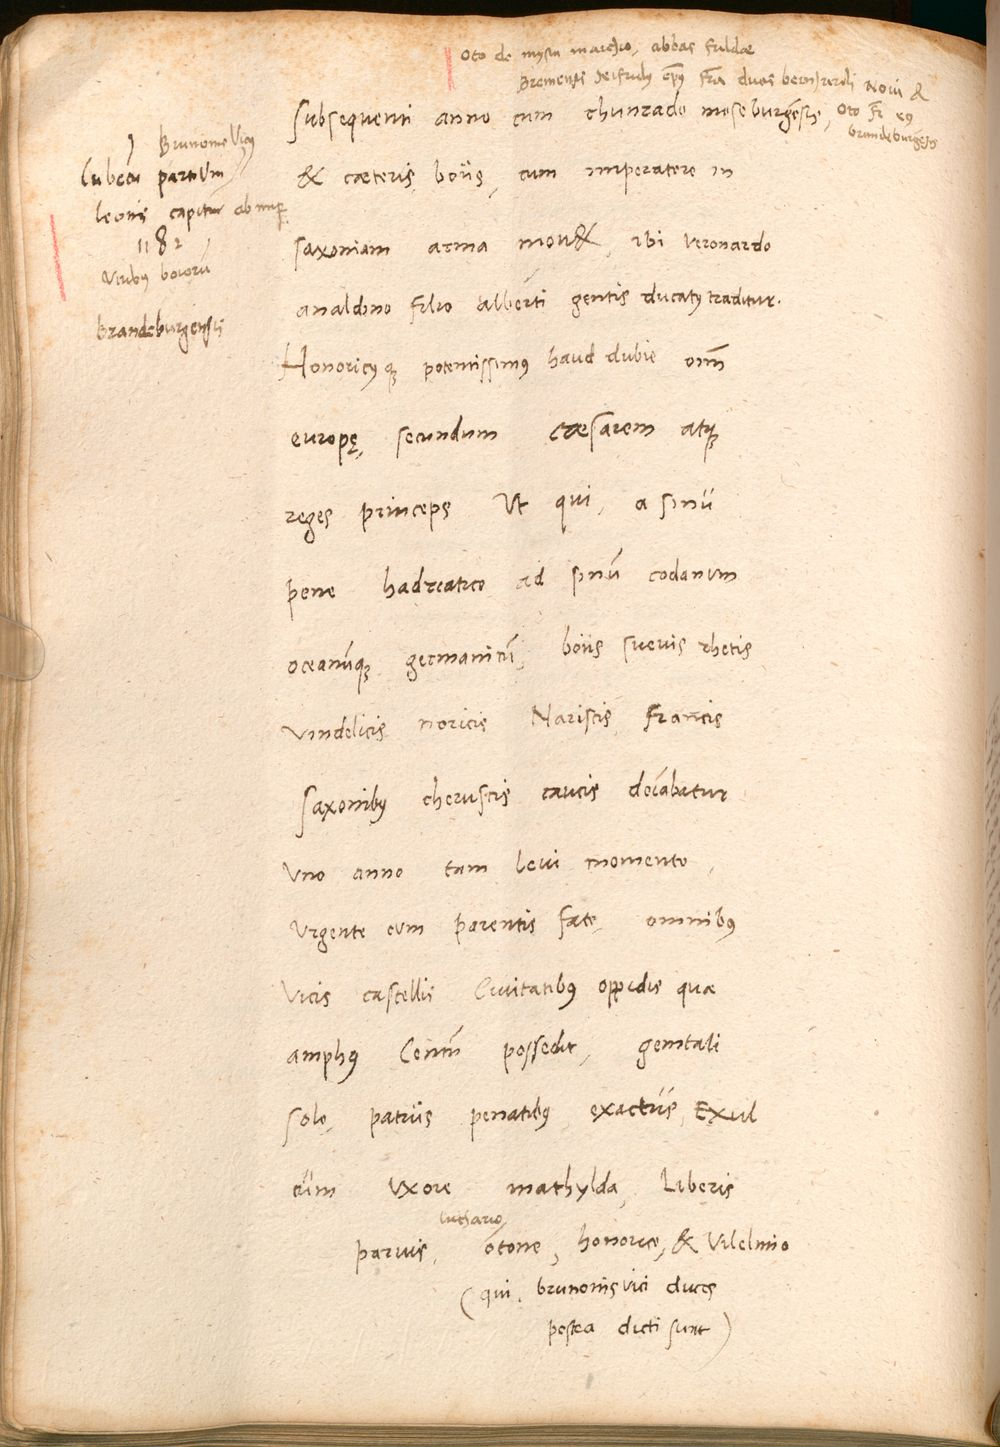 Oto de mysia marchio, abbas fuldæ
Bremensis
duos bernhardi Noui &
Oto Fr eꝰ
brandeburgēsis
Subsequenti anno cum chunrado moseburgēsis,
& cæteris boiis, cum imperatore in
saxoniam arma mou&, ibi veronardo
analdino filio alberti gentis ducatꝰ traditur.
Honoricꝰ qꝫ potentissimꝰ haud dubie om̄
europę, secundum cæsarem atqꝫ
reges princeps Ut qui, a sinu
pene hadreatico ad sinū codanum
oceanūqꝫ germanicū, boiis sueuis rhetis
vindelicis noricis Nariscis francis
saxonibꝰ cheruscis caucis
Vno anno tam leui momento,
Vrgente eum parentis fate, omnibꝰ
Vicis castellis Ciuitatibꝰ oppidis quæ
amplꝰ Centū possedit, genitali
solo, patriis penatibꝰ exactus, Exul
cum Vxore mathylda, Liberis
luthario,
paruis, otone, honorico, & Vilelmo
(qui, brunonis vici duces
postea dicti sunt)
Brunonis Vicꝰ
Lubecā partum
leonis capitur ab imp
1182
Viribꝰ boiorū
Brandeburgensis